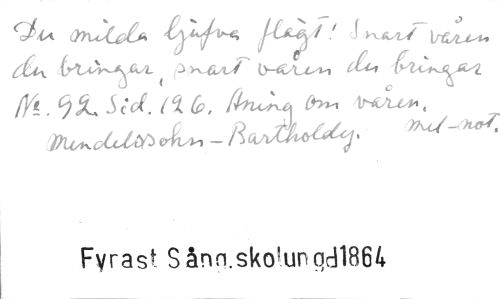 Du milda ljufva flägt! Snart våren
du bringar, snart våren du bringar
No. 92. Sid. 126. Aning om våren.
Mendelssohn-Bartholdy. mel-not.
Fyrast Sång.skolungd1864